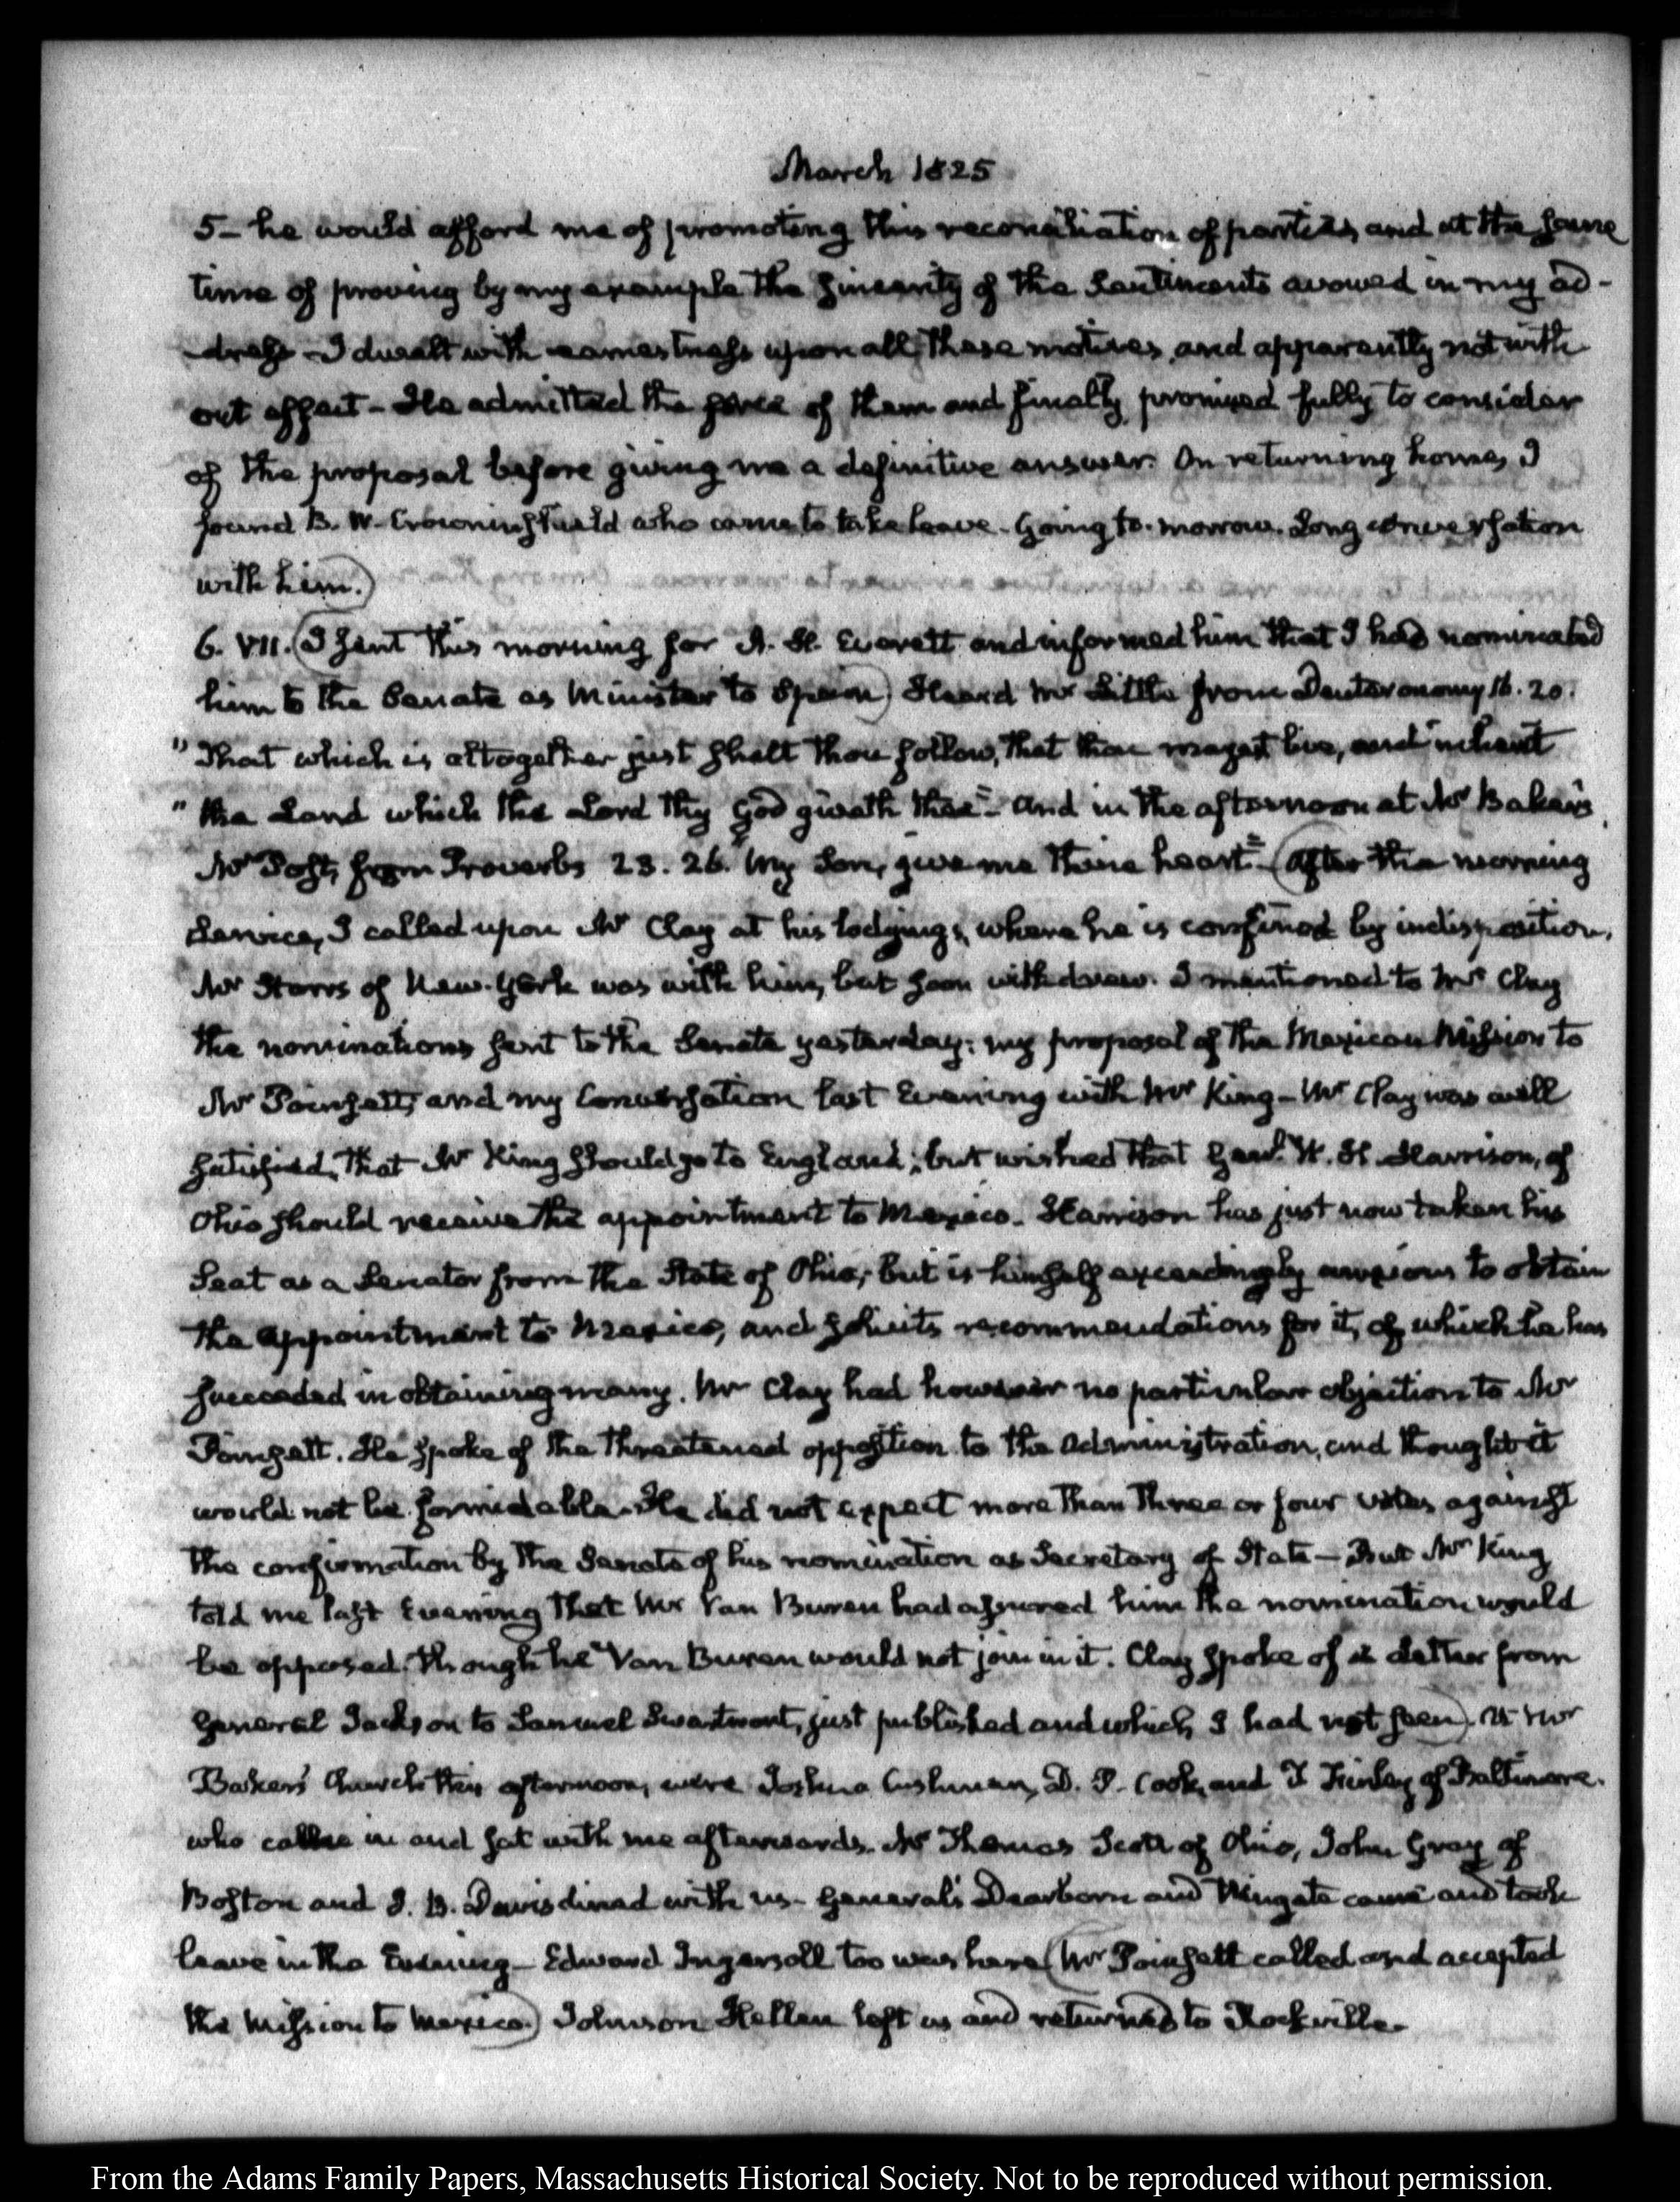 March 1825
5- he would afford me of promoting this reconciliation of parties, and at the same
time of proving by my example the sincerity of the Sentiments avowed in my ad-
-dress - I dwelt with earnestness upon all, these motives, and apparently not with
out effect - He admitted the force of them and finally promised fully to consider
of the proposal before giving me a definitive answer. On returning home, I
found B. W. Crowninshield who came to take leave - Going to-morrow. Long conversation
with him.)
6. VII. (I sent this morning for A. H. Everett and informed him that I had nominated
him to the Senate as Minister to Spain) Heard Mr Little from Deuteronomy 16. 20.
" That which is altogether just shalt thou follow, that thou mayest live, and inherit
" the Land which the Lord thy God giveth thee" - And in the afternoon at Mr Baker's,
Mr Post, from Proverbs 23. 26. My Son, give me thine heart." (After the morning
Service, I called upon Mr Clay at his lodgings, where he is confined by indisposition,
Mr Storrs of New-York was with him, but soon withdrew. I mentioned to Mr Clay
the nominations sent to the Senate yesterday; my proposal of the Mexican Mission to
Mr Poinsett, and my Conversation last Evening with Mr King - Mr Clay was well
satisfied, that Mr King should go to England; but wished that Genl. W. H. Harrison, of
Ohio should receive the appointment to Mexico. Harrison has just now taken his
Seat as a Senator from the State of Ohio; but is himself exceedingly anxious to obtain
the appointment to Mexico, and solicits recommendations for it, of which he has
succeeded in obtaining many. Mr Clay had however no particular objection to Mr
Poinsett. He spoke of the threatened opposition to the Administration, and thought it
would not be formidable - He did not expect more than three or four votes against
the confirmation by the Senate of his nomination as Secretary of State - But Mr King
told me last Evening that Mr Van Buren had assured him the nomination would
be opposed, though he Van Buren would not join in it. Clay spoke of a Letter from
General Jackson to Samuel Swartwout, just published and which I had not seen). At Mr
Baker's Church this afternoon, were Joshua Cushman, D. P. Cook, and Finley of Baltimore.
who came in and sat with me afterwards. Mr Thomas Scott of Ohio, John Gray of
Boston and J. B. Davis dined with us - Generals Dearborn and Wingate came and took
leave in the Evening - Edward Ingersoll too was here (Mr Poinsett called and accepted
the Mission to Mexico.) Johnson Hellen left us and returned to Rockville.
From the Adams Family Papers, Massachusetts Historical Society. Not to be reproduced without permission.